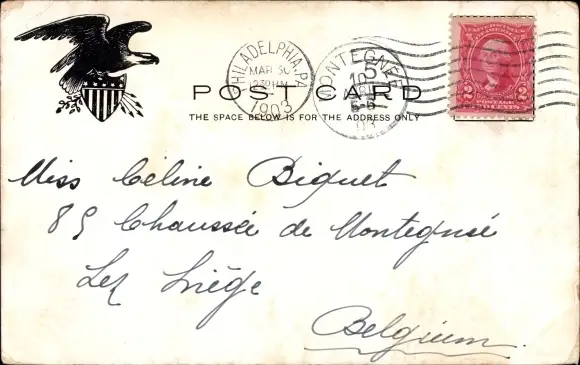 PHILADELPHIA, PA.
MAR 30
1903
MONTEGNÉE
10
03
2 2
POST CARD
THE SPACE BELOW IS FOR THE ADDRESS ONLY
Miss Céline Biquet
89 Chaussée de Montegnée
Lez Liège
Belgium